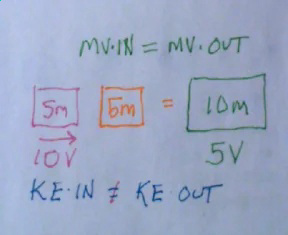 MV·IN = MV·OUT
5m 5m = 10m
10V 5V
KE·IN ≠ KE OUT